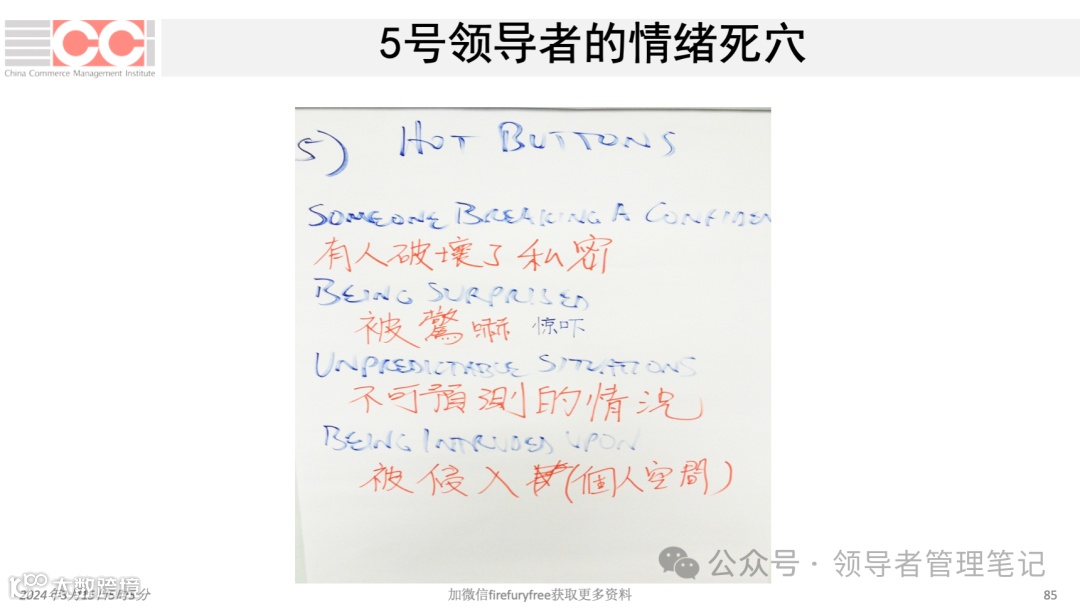 CCI
China Commerce Management Institute
5号领导者的情绪死穴
5) HOT BUTTONS
SOMEONE BREAKING A CONFIDEN
有人破壞了私密
BEING SURPRISED
被驚嚇 惊吓
UNPREDICTABLE SITUATIONS
不可預測的情況
BEING INTRUDED UPON
被侵入(個人空間)
公众号·领导者管理笔记
大数跨境
加微信firefuryfree获取更多资料
85